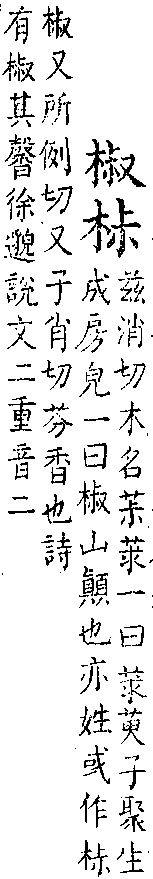 椒
兹消切木名茮莍一曰莍萸子聚生
成房皃一曰椒山顛也亦姓或作
椒又所例切又子肖切芬香也詩
有椒其馨徐邈說文二重音二